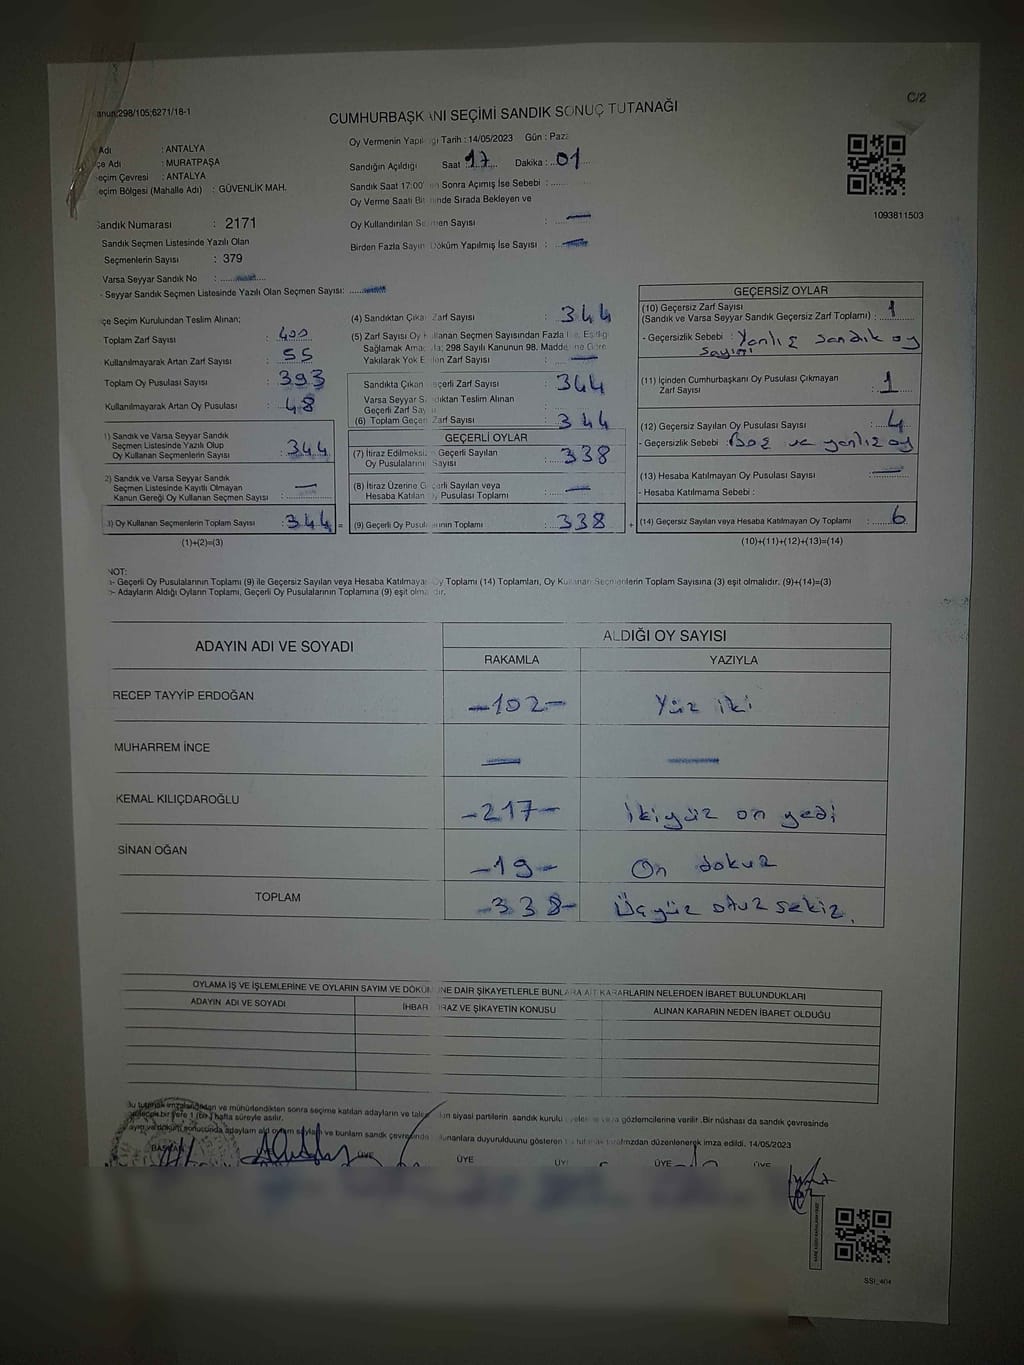 298/105;6271/18-1
C/2
CUMHURBAŞKANI SEÇİMİ SANDIK SONUÇ TUTANAĞI
Adı : ANTALYA
çe Adı : MURATPAŞA
eçim Çevresi : ANTALYA
eçim Bölgesi (Mahalle Adı) : GÜVENLİK MAH.
Sandık Numarası : 2171
Sandık Seçmen Listesinde Yazılı Olan
Seçmenlerin Sayısı : 379
Varsa Seyyar Sandık No :
- Seyyar Sandık Seçmen Listesinde Yazılı Olan Seçmen Sayısı:
Oy Vermenin Yapıl ığı Tarih : 14/05/2023 Gün : Paza
Sandığın Açıldığı Saat 17 Dakika : 01
Sandık Saat 17:00' n Sonra Açımış İse Sebebi :
Oy Verme Saati Bit inde Sırada Bekleyen ve
Oy Kullandırılan Seçmen Sayısı : —
Birden Fazla Sayım Döküm Yapılmış İse Sayısı :
1093811503
çe Seçim Kurulundan Teslim Alınan;
Toplam Zarf Sayısı : 400
Kullanılmayarak Artan Zarf Sayısı : 55
Toplam Oy Pusulası Sayısı : 393
Kullanılmayarak Artan Oy Pusulası : 48
1) Sandık ve Varsa Seyyar Sandık
Seçmen Listesinde Yazılı Olup
Oy Kullanan Seçmenlerin Sayısı : 344
2) Sandık ve Varsa Seyyar Sandık
Seçmen Listesinde Kayıtlı Olmayan
Kanun Gereği Oy Kullanan Seçmen Sayısı : —
3) Oy Kullanan Seçmenlerin Toplam Sayısı : 344 =
(1)+(2)=(3)
(4) Sandıktan Çıkan Zarf Sayısı : 344
(5) Zarf Sayısı Oy Kullanan Seçmen Sayısından Fazla İse, Eşitliği
Sağlamak Amacıyla; 298 Sayılı Kanunun 98. Maddesine Göre
Yakılarak Yok Edilen Zarf Sayısı : —
Sandıkta Çıkan Geçerli Zarf Sayısı : 344
Varsa Seyyar Sandıktan Teslim Alınan
Geçerli Zarf Sayısı :
(6) Toplam Geçerli Zarf Sayısı : 344
GEÇERLİ OYLAR
(7) İtiraz Edilmeksizin Geçerli Sayılan
Oy Pusulalarının Sayısı : 338
(8) İtiraz Üzerine Geçerli Sayılan veya
Hesaba Katılan Oy Pusulası Toplamı : —
(9) Geçerli Oy Pusulalarının Toplamı : 338 +
GEÇERSİZ OYLAR
(10) Geçersiz Zarf Sayısı
(Sandık ve Varsa Seyyar Sandık Geçersiz Zarf Toplamı) : 1
- Geçersizlik Sebebi : Yanlış sandık oy
sayımı
(11) İçinden Cumhurbaşkanı Oy Pusulası Çıkmayan
Zarf Sayısı : 1
(12) Geçersiz Sayılan Oy Pusulası Sayısı : 4
- Geçersizlik Sebebi : Boş ve yanlış oy
(13) Hesaba Katılmayan Oy Pusulası Sayısı : —
- Hesaba Katılmama Sebebi :
(14) Geçersiz Sayılan veya Hesaba Katılmayan Oy Toplamı : 6
(10)+(11)+(12)+(13)=(14)
NOT:
- Geçerli Oy Pusulalarının Toplamı (9) ile Geçersiz Sayılan veya Hesaba Katılmayan Oy Toplamı (14) Toplamları, Oy Kullanan Seçmenlerin Toplam Sayısına (3) eşit olmalıdır. (9)+(14)=(3)
- Adayların Aldığı Oyların Toplamı, Geçerli Oy Pusulalarının Toplamına (9) eşit olmalıdır.
ADAYIN ADI VE SOYADI
ALDIĞI OY SAYISI
RAKAMLA YAZIYLA
RECEP TAYYİP ERDOĞAN -102- Yüz iki
MUHARREM İNCE — —
KEMAL KILIÇDAROĞLU -217- İkiyüz on yedi
SİNAN OĞAN -19- On dokuz
TOPLAM -338- Üçyüz otuz sekiz.
OYLAMA İŞ VE İŞLEMLERİNE VE OYLARIN SAYIM VE DÖKÜMÜNE DAİR ŞİKAYETLERLE BUNLARA AİT KARARLARIN NELERDEN İBARET BULUNDUKLARI
ADAYIN ADI VE SOYADI İHBAR İTİRAZ VE ŞİKAYETİN KONUSU ALINAN KARARIN NEDEN İBARET OLDUĞU
Bu tutanak imzalandıktan ve mühürlendikten sonra seçime katılan adayların ve talep eden siyasi partilerin sandık kurulu üyelerine veya gözlemcilerine verilir. Bir nüshası da sandık çevresinde
bir yere 1 (bir) hafta süreyle asılır.
sonucunda adayların sayıları ve bunların sandık çevresinde bulunanlara duyurulduğunu gösteren bu tutanak tarafımızdan düzenlenerek imza edildi. 14/05/2023
BAŞKAN ÜYE ÜYE ÜYE ÜYE ÜYE
SSI_404